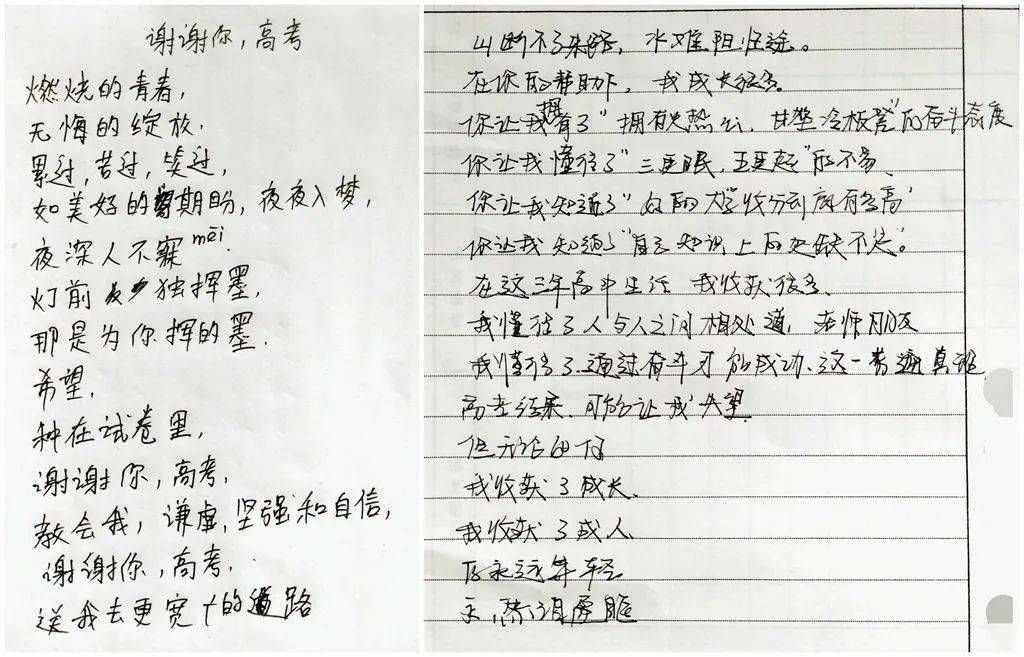 谢谢你，高考
燃烧的青春，
无悔的绽放.
累过，苦过，笑过，
如美好的期盼，夜夜入梦，
夜深人不寐 mèi.
灯前 独挥墨，
那是为你挥的墨.
希望，
种在试卷里，
谢谢你，高考，
教会我，谦虚，坚强和自信，
谢谢你，高考.
送我去更宽 的道路
山断不了来路，水难阻归途。
在你的帮助下，我成长很多
你让我拥有了"拥有火热心、甘坐冷板凳"的奋斗态度
你让我懂得了"三更眠，五更起"的不易、
你让我知道了" 的大学收分到底有多高"
你让我知道了"自己知识上的欠缺不足"。
在这三年高中生活 我收获很多、
我懂得了人与人之间相处道，老师朋友
我懂得了通过奋斗才能成功、这一普遍真理
高考结果、可能让我失望
但无论如何
我收获了成长、
我收获了成人、
永远年轻
永 热泪盈眶